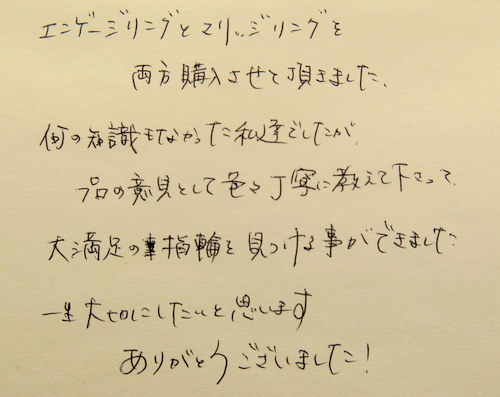 エンゲージリングとマリッジリングを
両方購入させて頂きました。
何の知識もなかった私達でしたが、
プロの意見として色々丁寧に教えて下さって、
大満足の指輪を見つける事ができました
一生大切にしたいと思います
ありがとうございました!